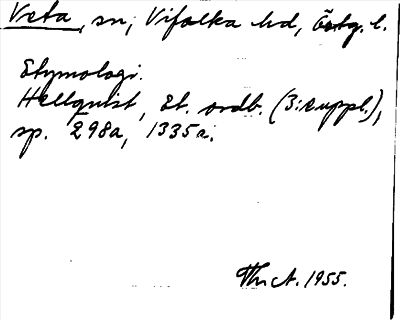 Veta, sn, Vifolka hd, Östg. l.
Etymologi.
Hellquist, Et. ordb. (3:e uppl.),
sp. 298a, 1335a.
Thn A. 1955.